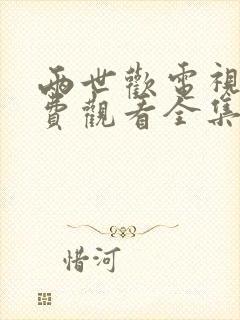 兩世歡電視
費觀看全集
惜河